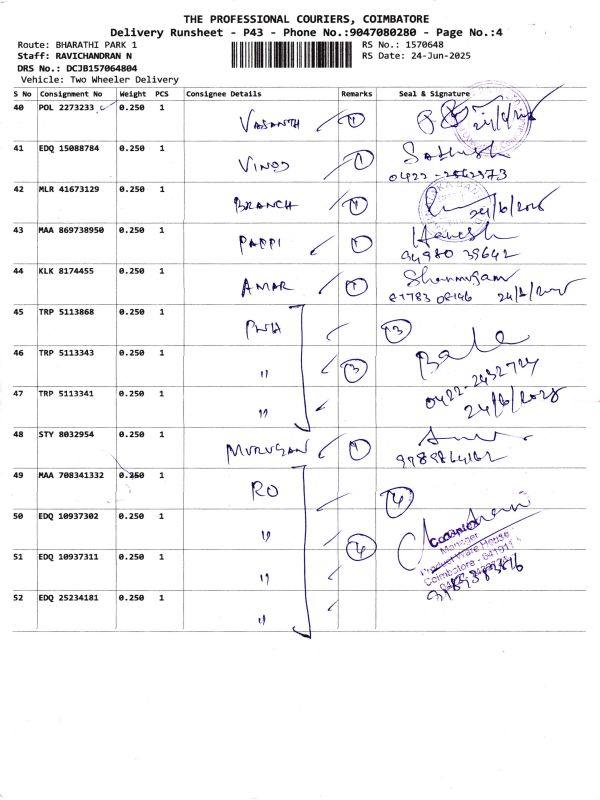 THE PROFESSIONAL COURIERS, COIMBATORE
Delivery Runsheet - P43 - Phone No.:9047080280 - Page No.:4
Route: BHARATHI PARK 1
RS No.: 1570648
Staff: RAVICHANDRAN N
RS Date: 24-Jun-2025
DRS No.: DCJB157064804
Vehicle: Two Wheeler Delivery
S No Consignment No Weight PCS Consignee Details Remarks Seal & Signature
40 POL 2273233 0.250 1 VASANTH 1
41 EDQ 15088784 0.250 1 VINOD 1 Sathish
0422-2562573
42 MLR 41673129 0.250 1 BRANCH 1 24/6/2025
43 MAA 869738950 0.250 1 PAPPI 1 Haresh
94980 39642
44 KLK 8174455 0.250 1 AMAR 1 Shanmugam
81783 08146
45 TRP 5113868 0.250 1 3
46 TRP 5113343 0.250 1 " 3 Bala
0422-2432724
47 TRP 5113341 0.250 1 " 24/6/2025
48 STY 8032954 0.250 1 MURUGAN 1
49 MAA 708341332 0.250 1 RO 4
50 EDQ 10937302 0.250 1 " 4
Manager
Product Ware House
51 EDQ 10937311 0.250 1 "
Coimbatore - 641911
52 EDQ 25234181 0.250 1 "